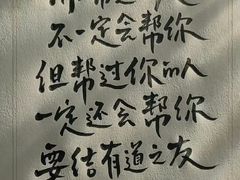 不一定会帮你
但帮过你的人
一定还会帮你
要结有道之友